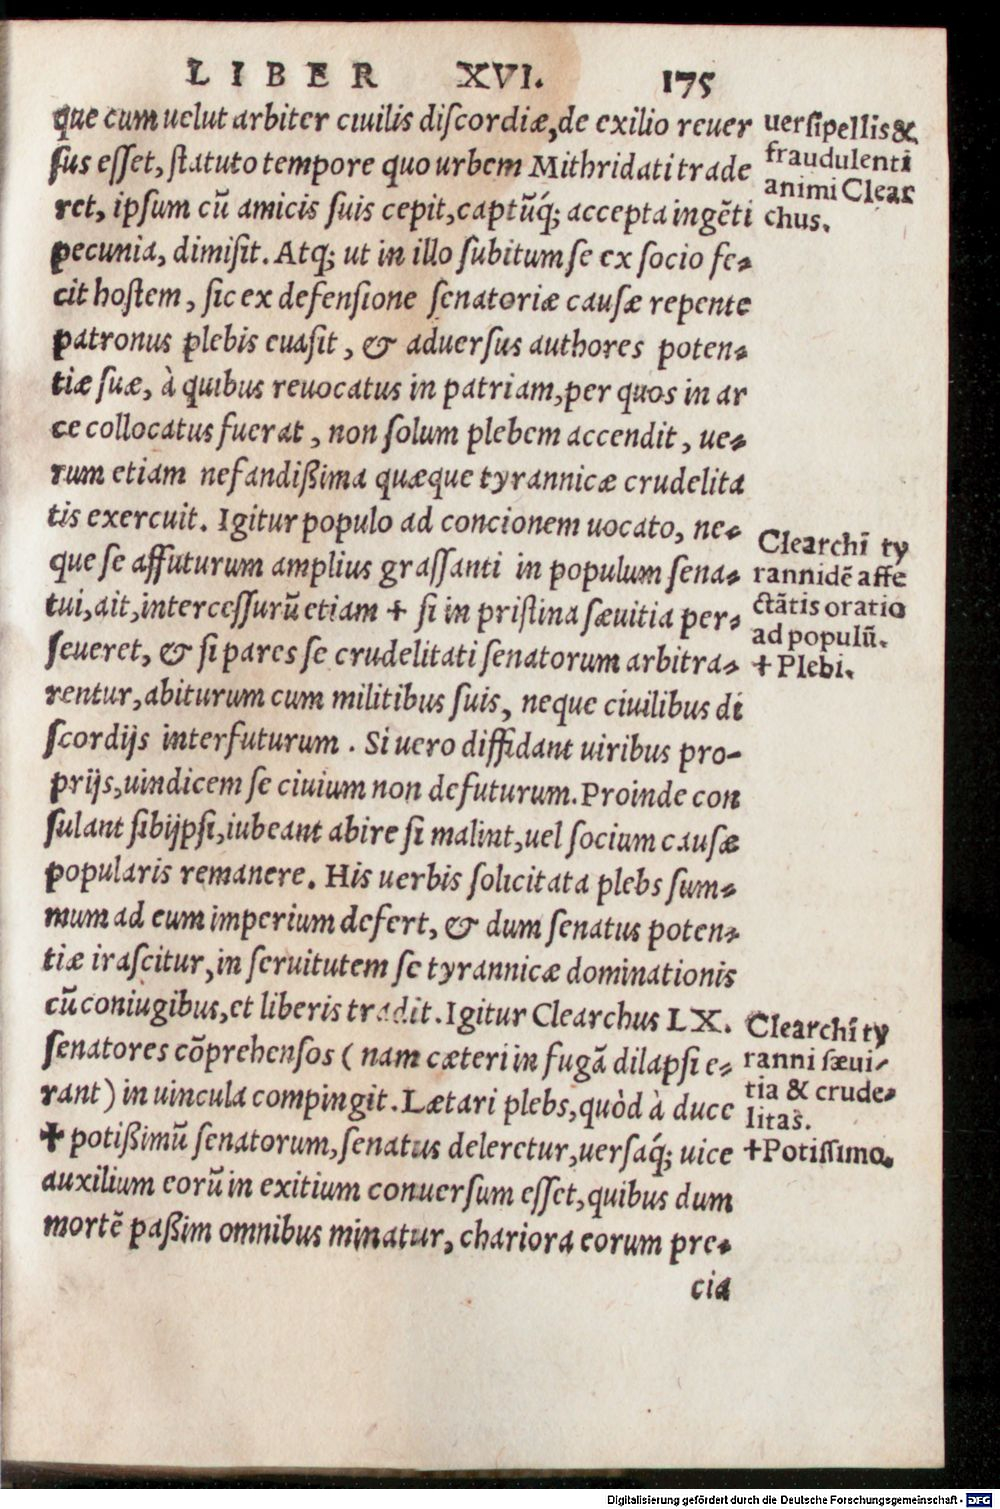 LIBER XVI. 175
que cum uelut arbiter ciuilis diſcordiæ, de exilio reuer
ſus eſſet, ſtatuto tempore quo urbem Mithridati trade
ret, ipſum cũ amicis ſuis cepit, captũq́; accepta ingẽti
pecunia, dimiſit. Atq; ut in illo ſubitum ſe ex ſocio fe-
cit hoſtem, ſic ex defenſione ſenatoriæ cauſæ repente
patronus plebis euaſit, & aduerſus authores poten-
tiæ ſuæ, à quibus reuocatus in patriam, per quos in ar
ce collocatus fuerat, non ſolum plebem accendit, ue-
rum etiam nefandißima quæque tyrannicæ crudelita
tis exercuit. Igitur populo ad concionem uocato, ne-
que ſe affuturum amplius graſſanti in populum ſena-
tui, ait, interceſſurũ etiam + ſi in priſtina ſæuitia per-
ſeueret, & ſi pares ſe crudelitati ſenatorum arbitra-
rentur, abiturum cum militibus ſuis, neque ciuilibus di
ſcordijs interfuturum. Si uero diffidant uiribus pro-
prijs, uindicem ſe ciuium non defuturum. Proinde con
ſulant ſibijpſi, iubeant abire ſi malint, uel ſocium cauſæ
popularis remanere. His uerbis ſolicitata plebs ſum-
mum ad eum imperium defert, & dum ſenatus poten-
tiæ iraſcitur, in ſeruitutem ſe tyrannicæ dominationis
cũ coniugibus, et liberis tradit. Igitur Clearchus LX.
ſenatores cõprehenſos (nam cæteri in fugã dilapſi e-
rant) in uincula compingit. Lætari plebs, quòd à duce
+ potißimũ ſenatorum, ſenatus deleretur, uerſaq́; uice
auxilium eorũ in exitium conuerſum eſſet, quibus dum
mortẽ paßim omnibus minatur, chariora eorum pre-
cia
uerſipellis &
fraudulenti
animi Clear
chus.
Clearchi ty
rannidẽ affe
ctãtis oratio
ad populũ.
+ Plebi.
Clearchi ty
ranni ſæui-
tia & crude-
litas.
+Potiſſimo.
Digitalisierung gefördert durch die Deutsche Forschungsgemeinschaft - DFG